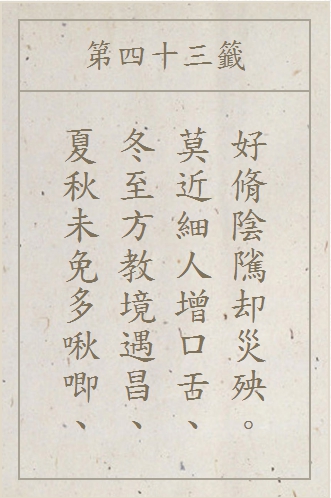 第四十三籤
夏秋未免多啾唧、
冬至方教境遇昌、
莫近細人增口舌、
好脩陰隲却災殃。